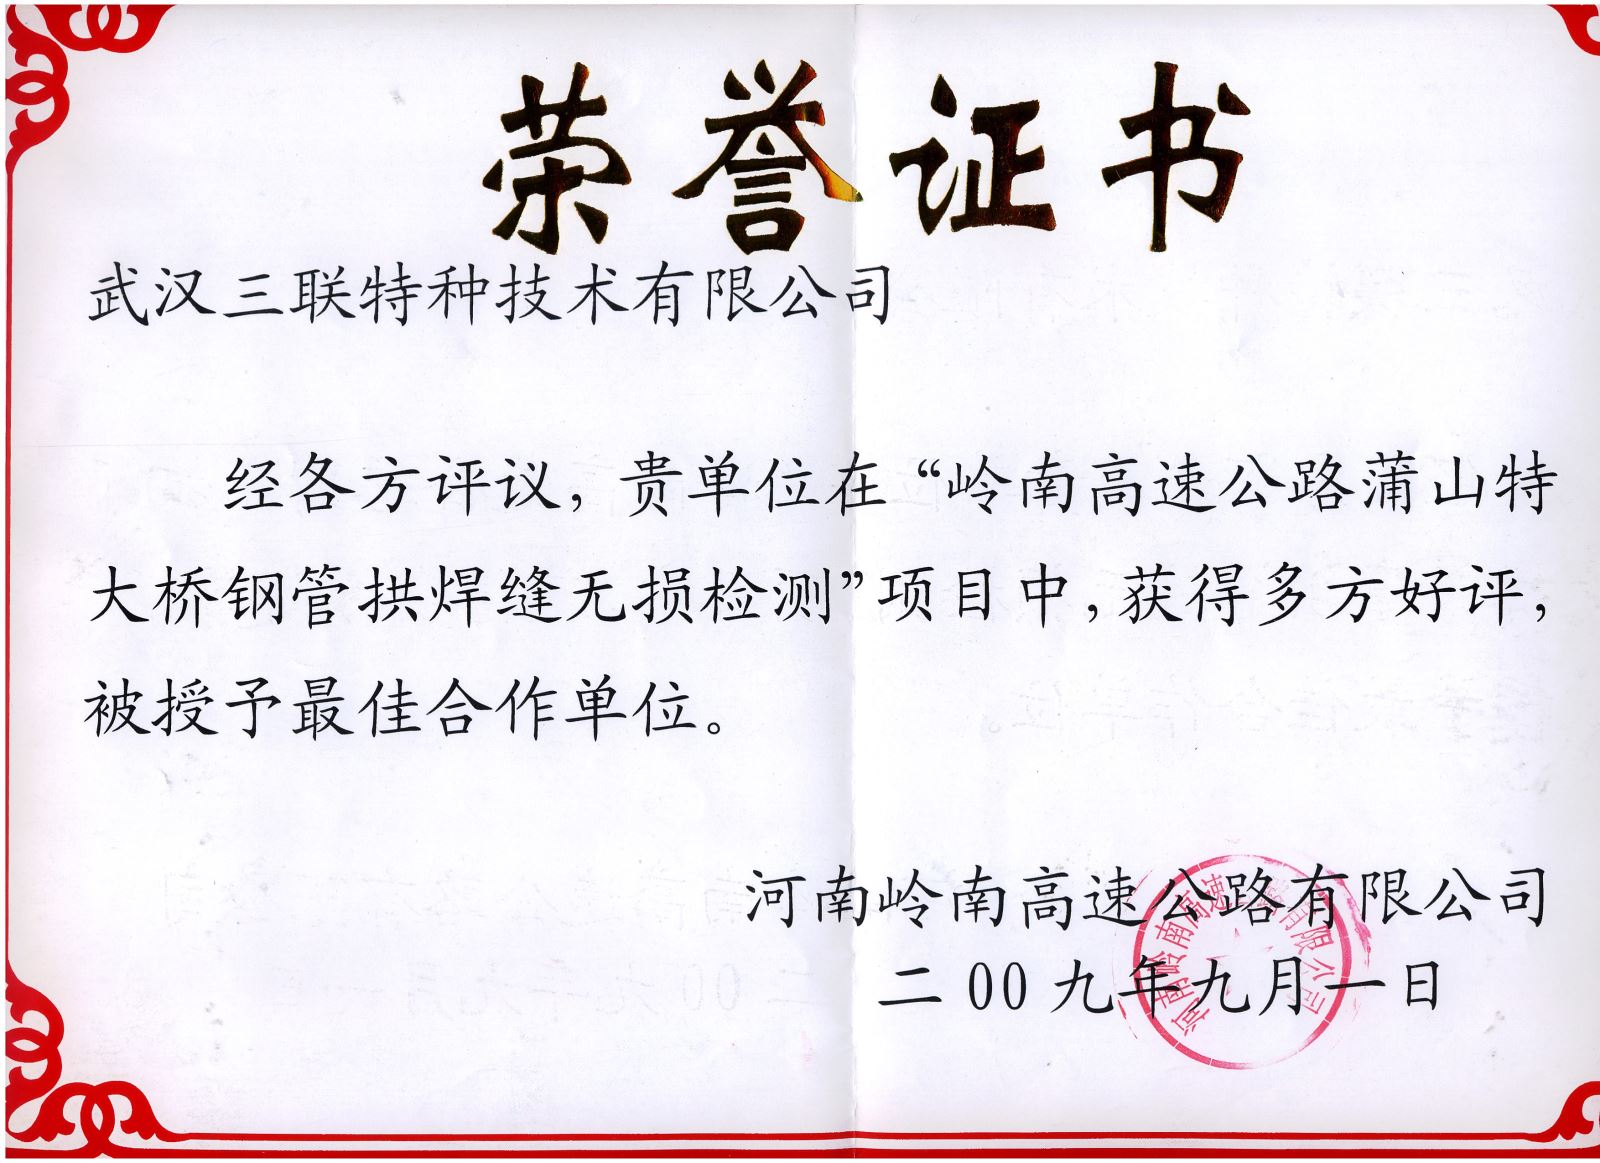 荣誉证书
武汉三联特种技术有限公司
经各方评议，贵单位在“岭南高速公路蒲山特
大桥钢管拱焊缝无损检测”项目中，获得多方好评，
被授予最佳合作单位。
河南岭南高速公路有限公司
二00九年九月一日
河南岭南高速公路有限公司